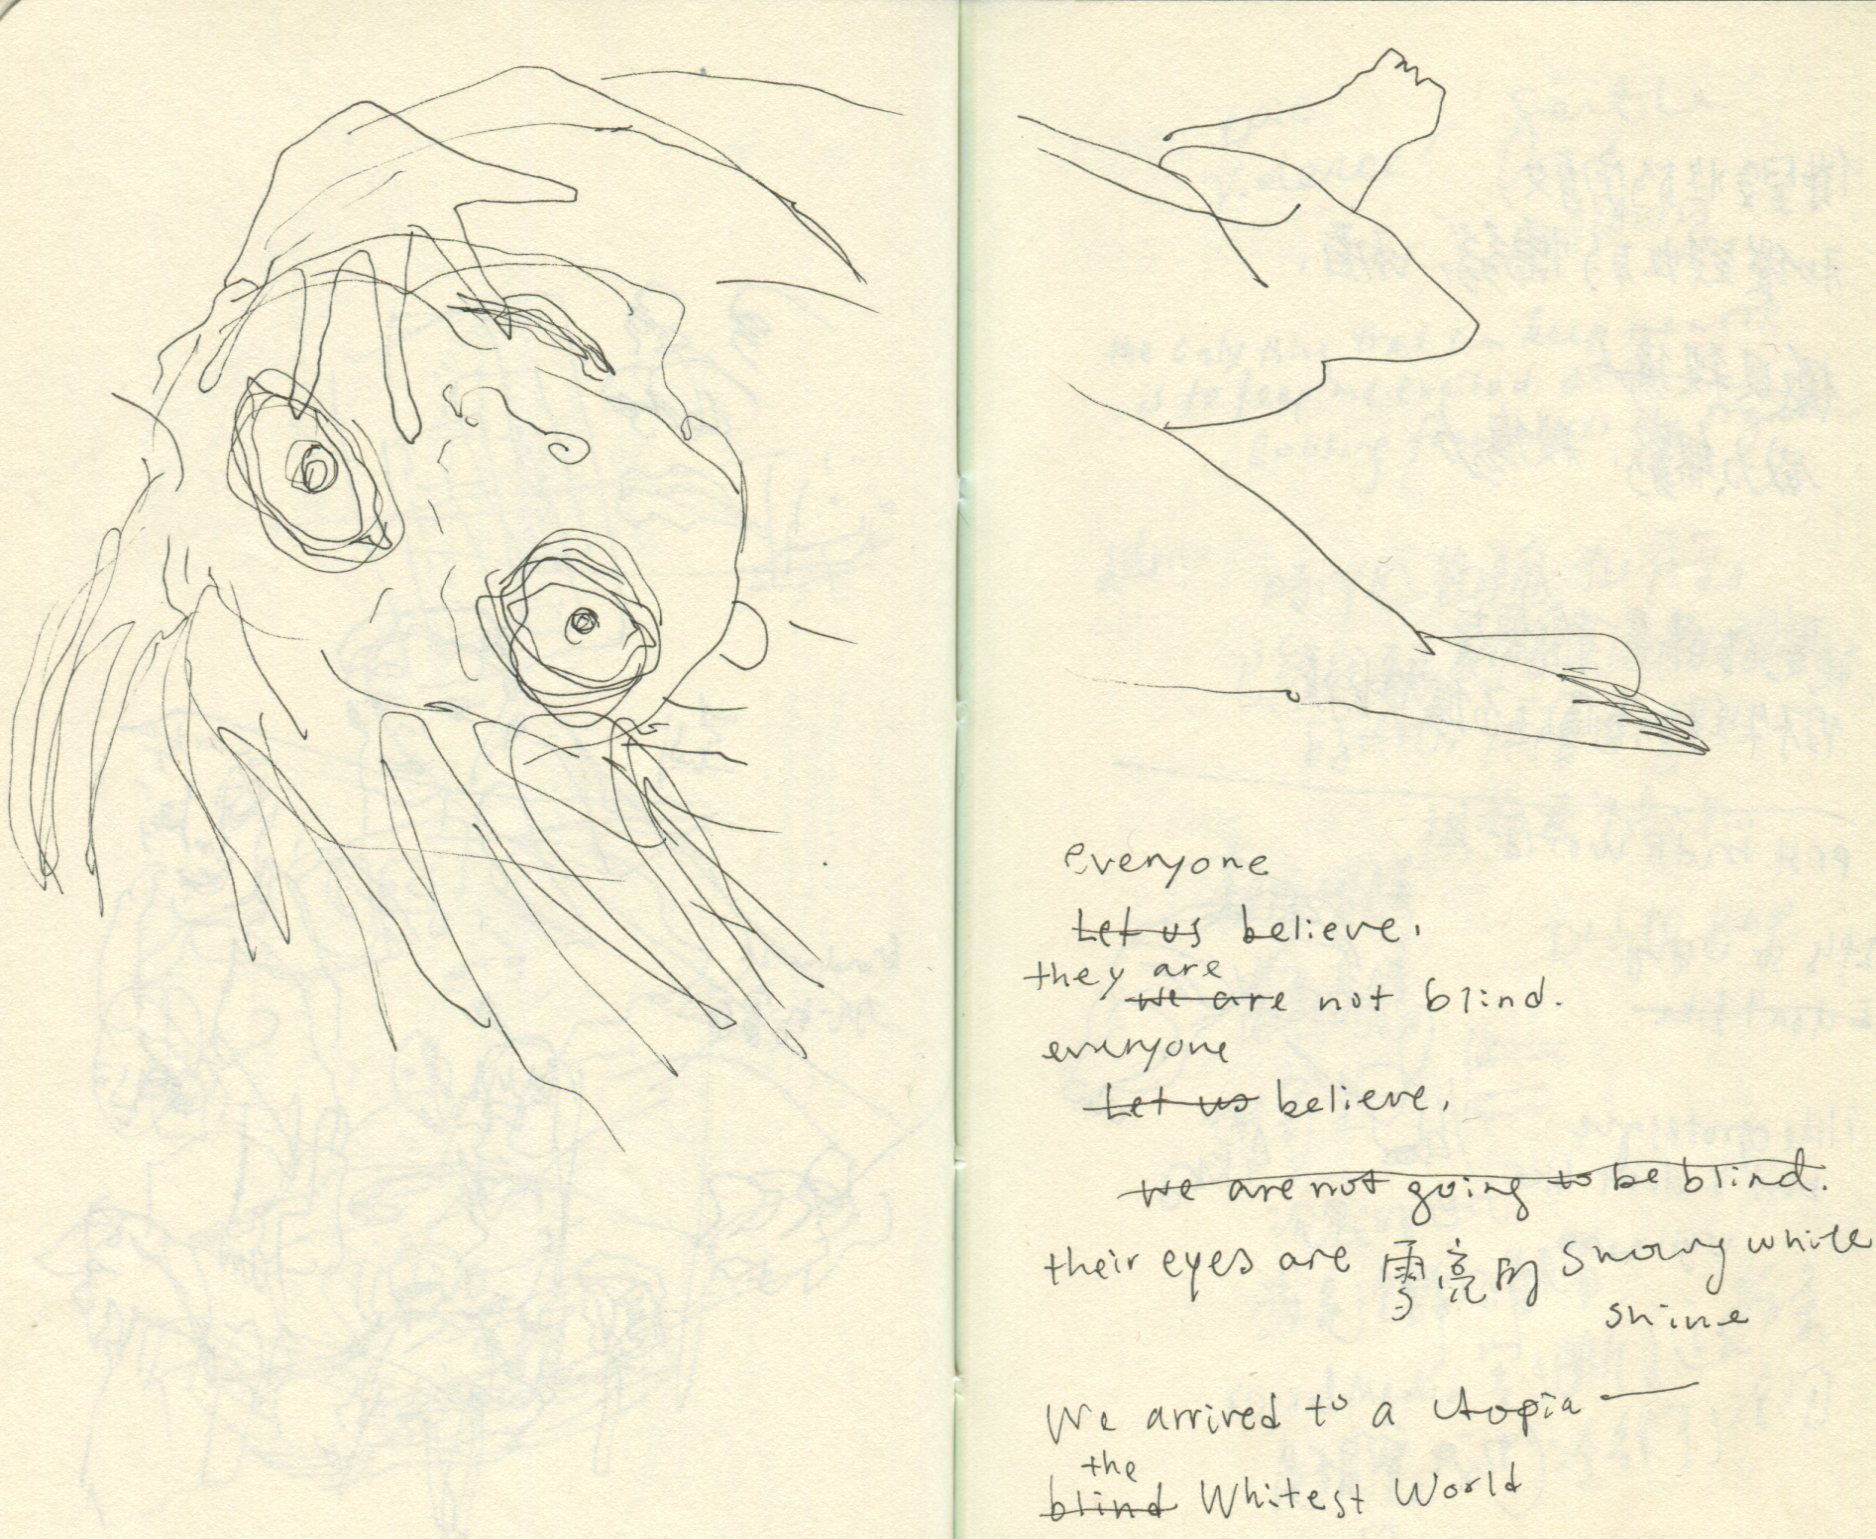 everyone
Let us believe.
they are
we are not blind.
everyone
Let us believe.
we are not going to be blind.
their eyes are 雪亮的 snowy white
shine
We arrived to a utopia —
the
blind Whitest World